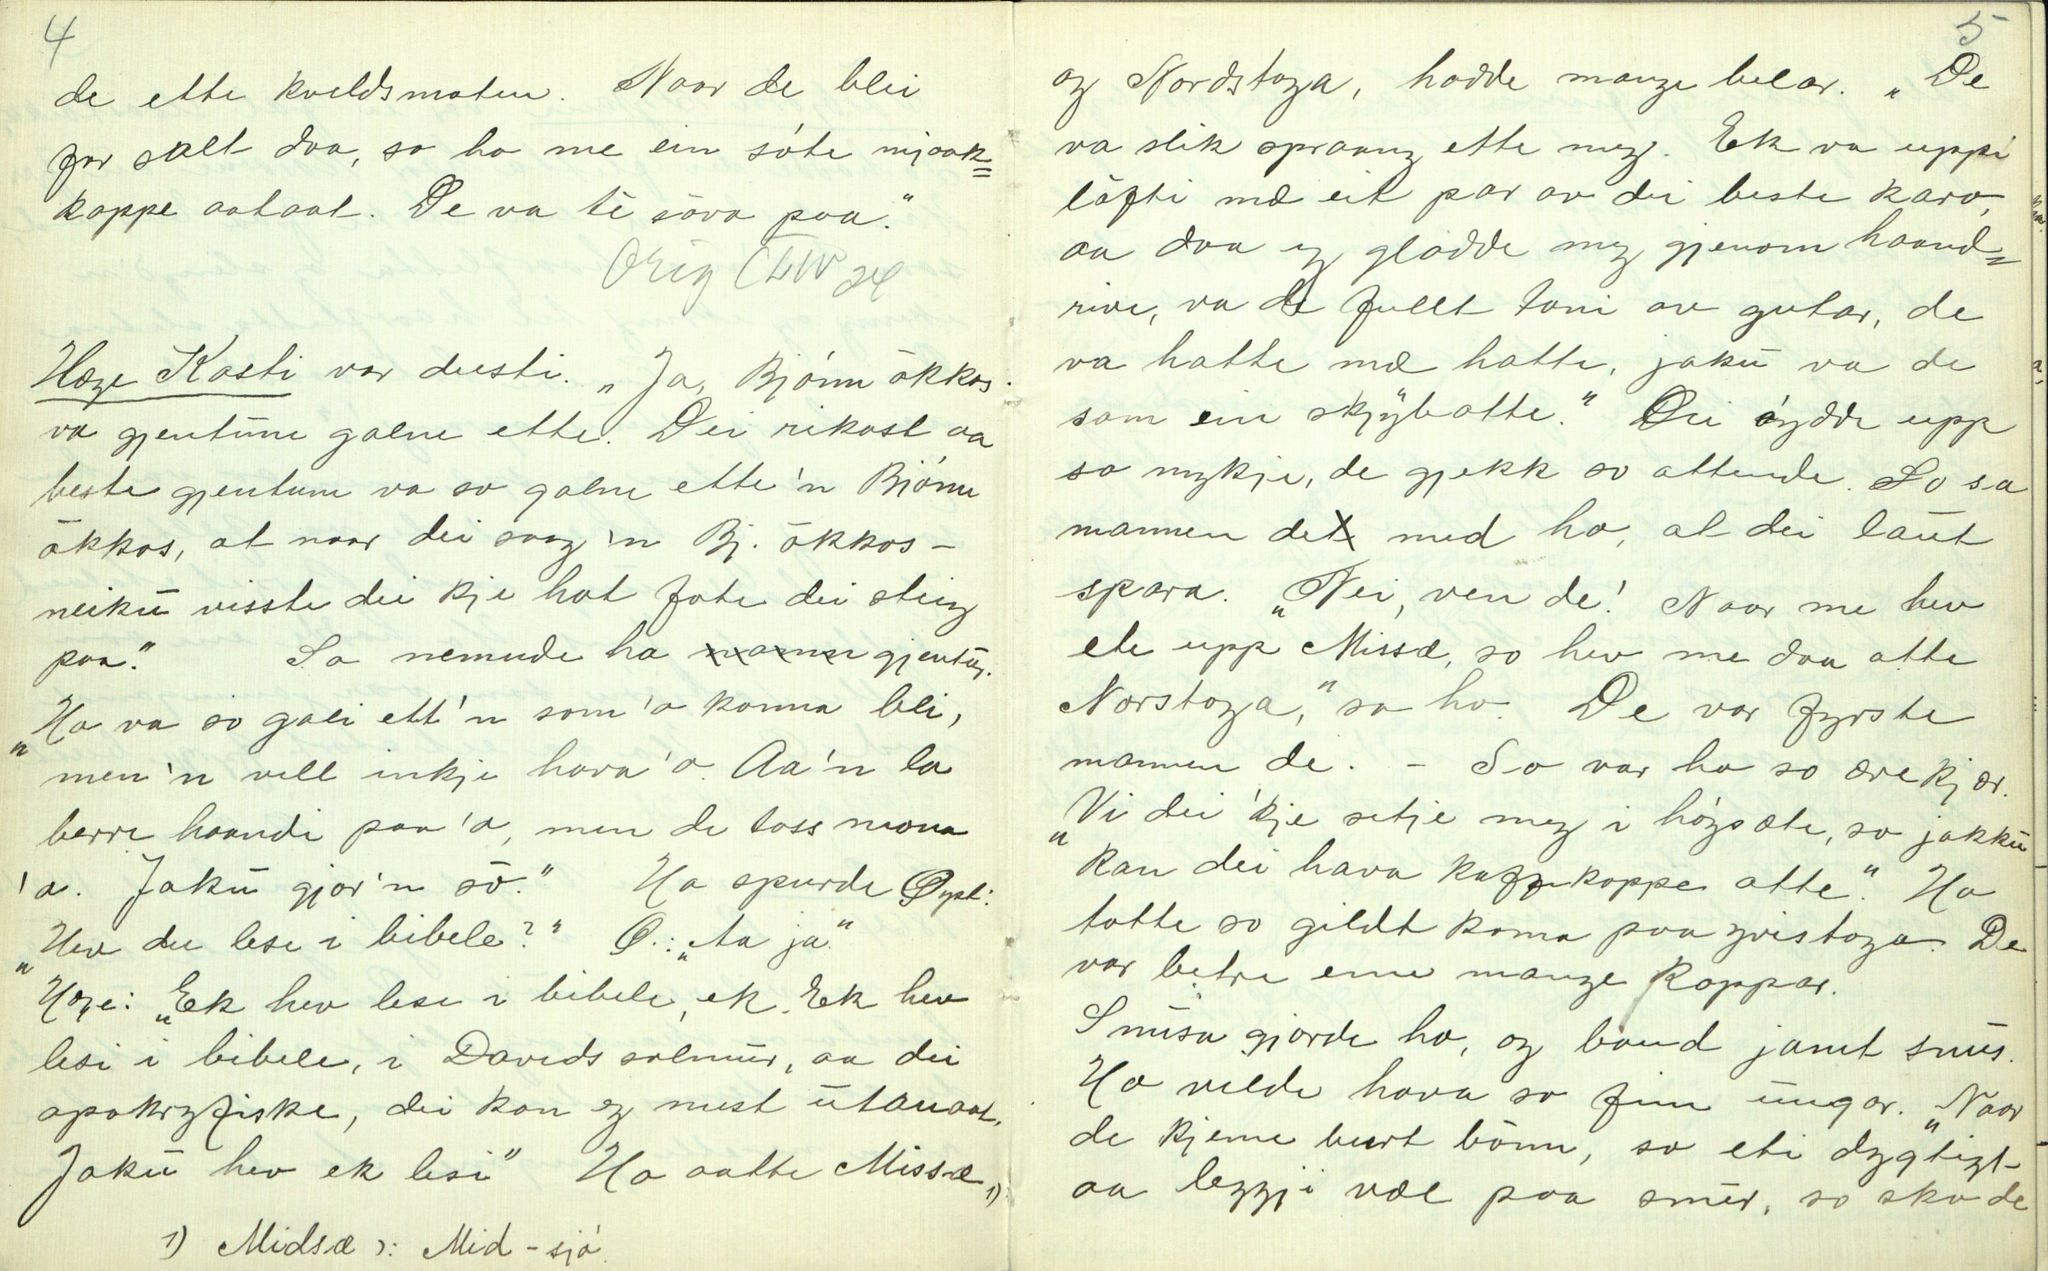 4
de ette kveldsmaten. Naar de blei
for salt daa, so ha me ein sóte mjaak=
koppe aataat. De va te sòva paa."
Orig
Hæge Kasti var deusti. „Ja, Bjónn åkkos.
va gjentūne galne ette. Dei rikast aa
beste gjentune va so galne ette'n Bjónn
åkkos, at naar dei saag 'n Bj. åkkos –
neikū visste dei kje hot fote dei steig
paa." Sa nemnde ha gjentūg.
„Ha va so gali ett'n som 'a kanna bli,
men'n vell inkje hava'a. Aa'n la
berre haandi paa'a, men de tass mona
'a. Jakū gjor'n sō." Ha spurde Øyst:
„Hev du lese i bibele?" Ø.: „Aa ja"
Hæge: „Ek hev lese i bibele, ek. Ek hev
lesi i bibele, i Davids salmūr, aa dei
apokryfiske, dei kan eg mest ūtanaat.
Jakū hev ek lesi" Ha aatte Missæ 1)
1) Midsæ ɔ: Mid-sjó
5
og Nordstoga, hadde mange belar. „De
va slik spraang ette meg. Ek va uppi
lofti mæ eit par av dei beste karo,
aa daa eg gladde meg gjenom haand=
rive, va de fullt toni av gutar, de
va hatte mæ hatte, jakū va de
som ein skjȳbatte." Dei øydde upp
so mykje, de gjekk so attende. So sa
mannen de med ho, at dei laut
spara. „Nei, ven de! Naar me hev
ete upp Missæ, so hev me daa atte
Norstoga," sa ho. De var fyrste
mannen de. – So var ha so ærekjær.
„Vi dei 'kje setje meg i høgsæte, so jakkū
kan dei hava kaffekoppe atte." Ha
totte so gildt koma paa gvistoga. De
var betre enn mange koppar.
Snūsa gjorde ha, og baud jamt snūs.
Ha vilde hava so finn ūngar. „Naar
de kjeme burt bònn, so eti dygtigt
aa leggji væl paa smèr, so ska de